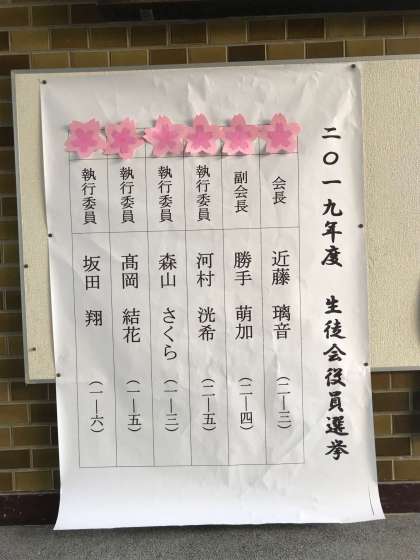 二〇一九年度 生徒会役員選挙
会長 近藤 璃音 (二―三)
副会長 勝手 萌加 (二―四)
執行委員 河村 洸希 (二―五)
執行委員 森山 さくら (一―三)
執行委員 髙岡 結花 (一―五)
執行委員 坂田 翔 (一―六)